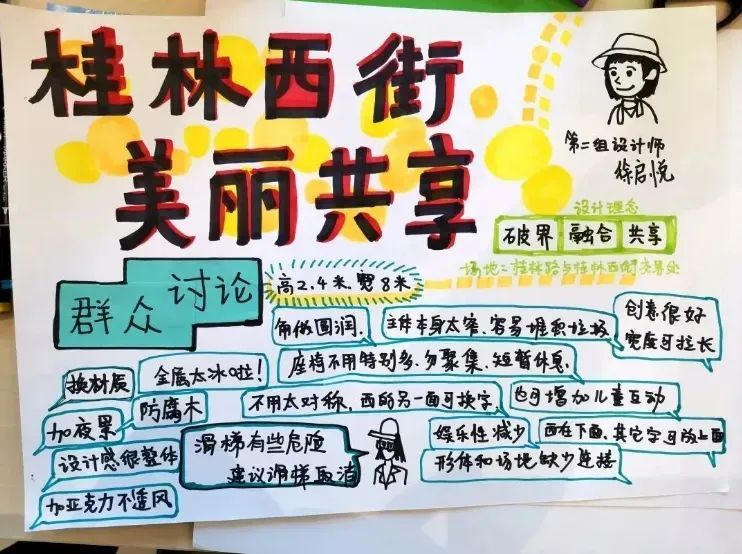 桂林西街
美丽共享
第二组设计师
徐启悦
设计理念
破界 融合 共享
场地：桂林路与桂林西街交界处
群众讨论
高2.4米、宽8米
角做圆润.
主体本身太窄、容易堆积垃圾
创意很好
宽度可拉长
换材质
金属太冰啦！
座椅不用特别多、勿聚集、短暂休息.
加夜景
防腐木
不用太对称，西的另一面可换字
也可增加儿童互动
设计感很整体
滑梯有些危险
建议滑梯取消
娱乐性减少
西在下面、其它字可放上面
形体和场地缺少连接
加亚克力不透风